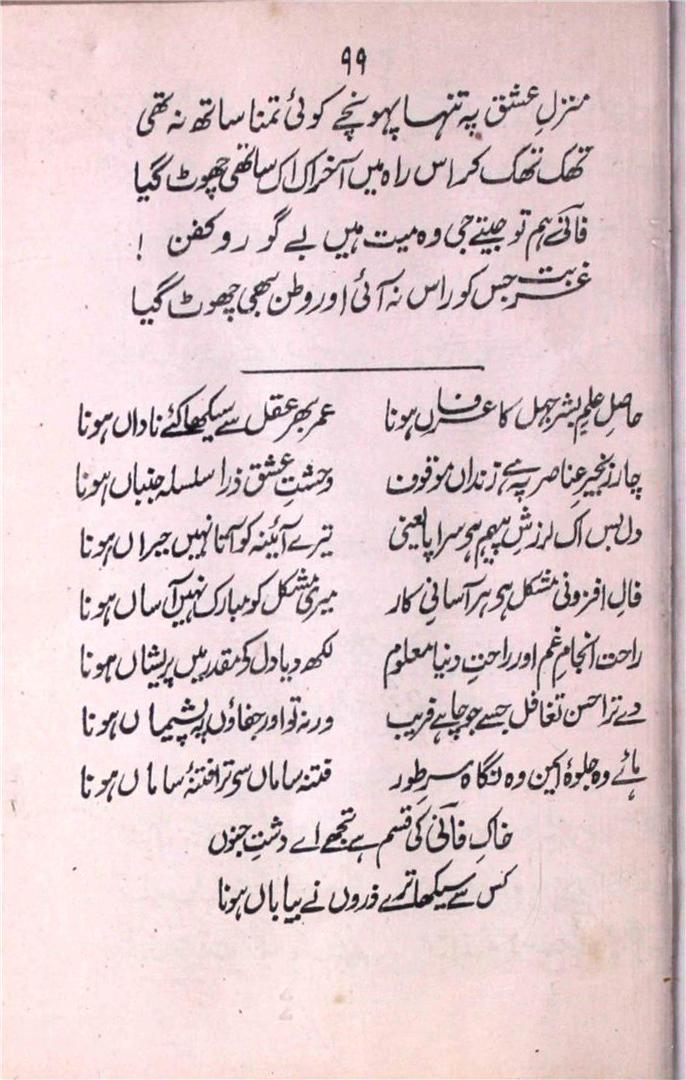 ۹۹
منزلِ عشق پہ تنہا پہونچے کوئی تمنا ساتھ نہ تھی
تھک تھک کر اس راہ میں آخر اک اک ساتھی چھوٹ گیا
فانیؔ ہم تو جیتے جی وہ میت ہیں بے گور و کفن !
غربت جس کو راس نہ آئی اور وطن بھی چھوٹ گیا
حاصلِ علمِ بشر جہل کا عرفاں ہونا عمر بھر عقل سے سیکھا کئے ناداں ہونا
چار زنجیرِ عناصر پہ ہے زنداں موقوف وحشتِ عشق ذرا سلسلہ جنباں ہونا
دل بس اک لرزشِ پیہم ہو سراپا یعنی تیرے آئینہ کو آتا نہیں حیراں ہونا
فالِ افزونیِ مشکل ہو ہر آسانیِ کار میری مشکل کو مبارک نہیں آساں ہونا
راحت انجامِ غم اور راحتِ دنیا معلوم لکھ دیا دل کے مقدر میں پریشاں ہونا
دے ترا حسنِ تغافل جسے جو چاہے فریب ورنہ تو اور جفاؤں پہ پشیماں ہونا
ہائے وہ جلوۂ ایمن وہ نگاہِ سرِ طور فتنہ ساماں سے ترا فتنۂ ساماں ہونا
خاکِ فانیؔ کی قسم ہے تجھے اے دشتِ جنوں
کس سے سیکھا ترے ذروں نے بیاباں ہونا